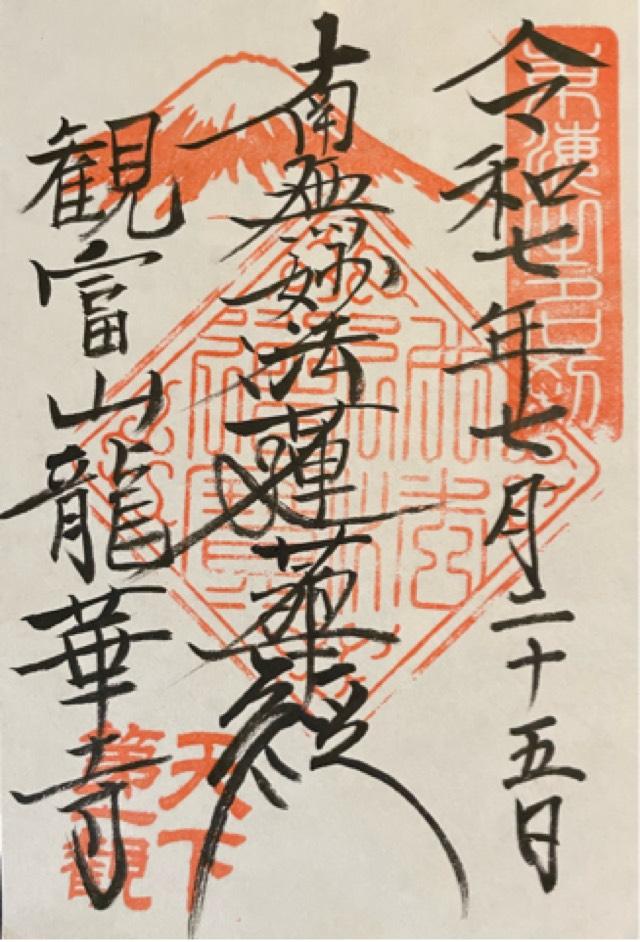 令和七年七月二十五日
南無妙法蓮華経
観富山龍華寺
天下
第一観